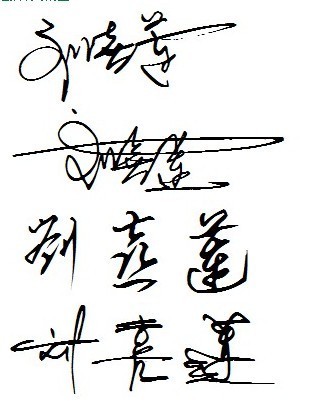 刘喜莲
刘喜莲
劉喜莲
刘喜莲